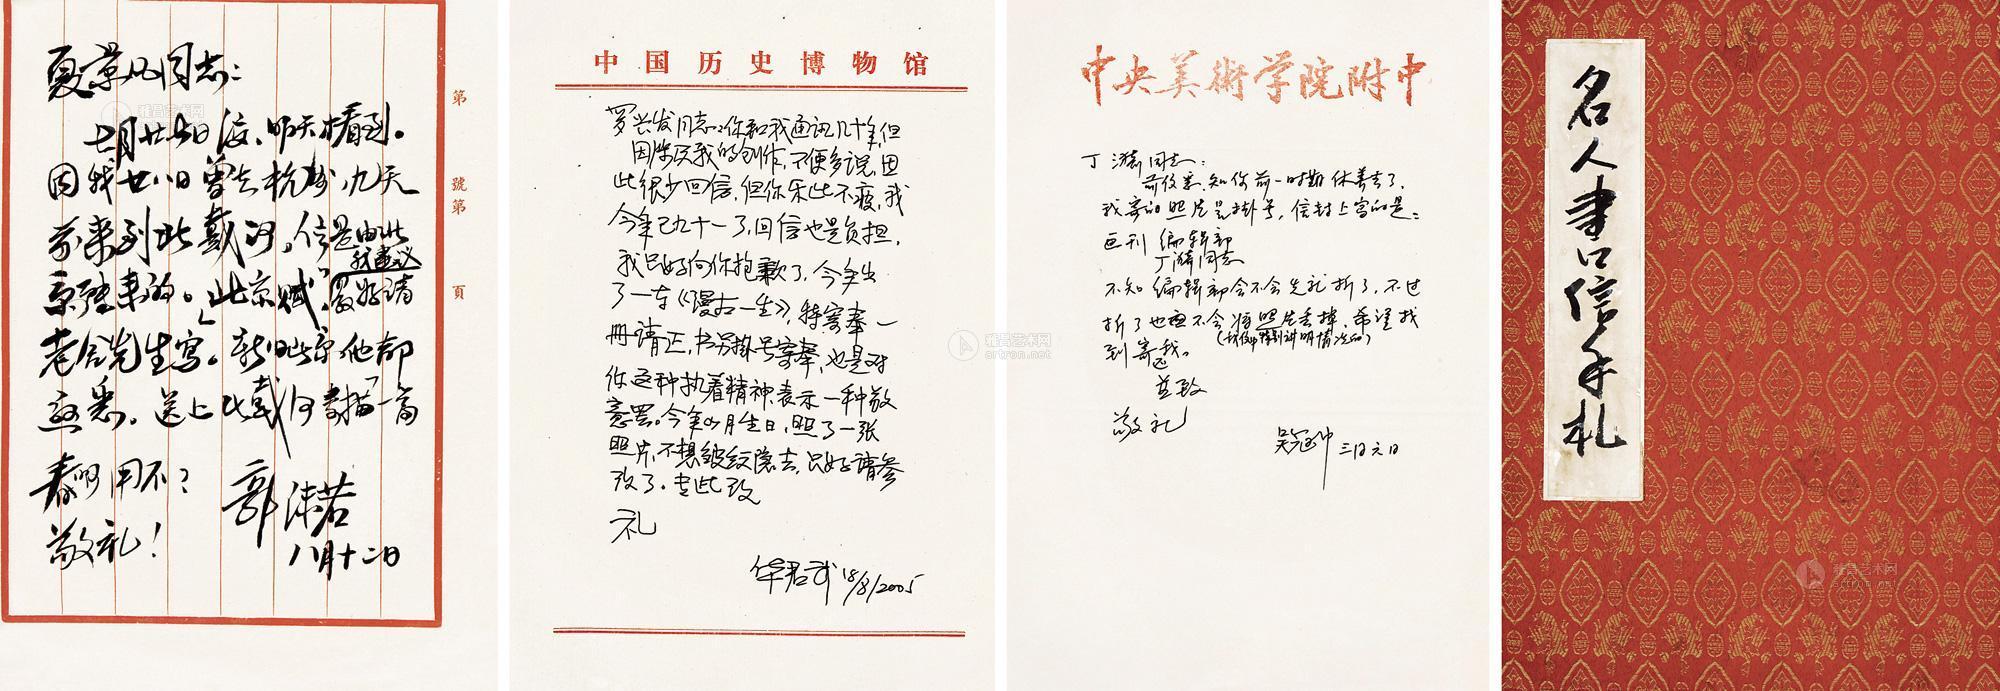 夏景凡同志：
七月廿七日信，昨天才看到。
因我廿八日曾去杭州，九天
前来到北戴河。信是由北
京转来的。「北京赋」
我建议
最好请
老舍先生写。新旧北京他都
熟悉。送上「北戴河素描」一首
看可用不？
敬礼！
郭沫若
八月十二日
第 號第 頁
中国历史博物馆
罗兴发同志：你和我通讯几十年，但
因涉及我的创作，不便多说，因
此很少回信，但你乐此不疲，我
今年已九十一了，回信也是负担，
我只好向你抱歉了，今年出
了一本《漫古一生》，特寄奉一
册请正，书另掛号寄奉，也是对
你这种执着精神表示一种敬
意罢。今年4月生日，照了一张
照片，不想皱纹隐去，只好请参
改了。专此致
礼
华君武 18/8/2005
中央美術学院附中
丁涛同志：
前信悉，知你前一时期休养去了，
我寄的照片是掛号，信封上写的是：
画刊编辑部
丁涛同志
不知编辑部会不会先衬拆了，不过
拆了也不会将照片丢掉，希望找
到寄还我。
（特别讲明情况的）
并致
敬礼
吴冠中 三月元日
名人書口信手札
雅昌艺术网
artron.net